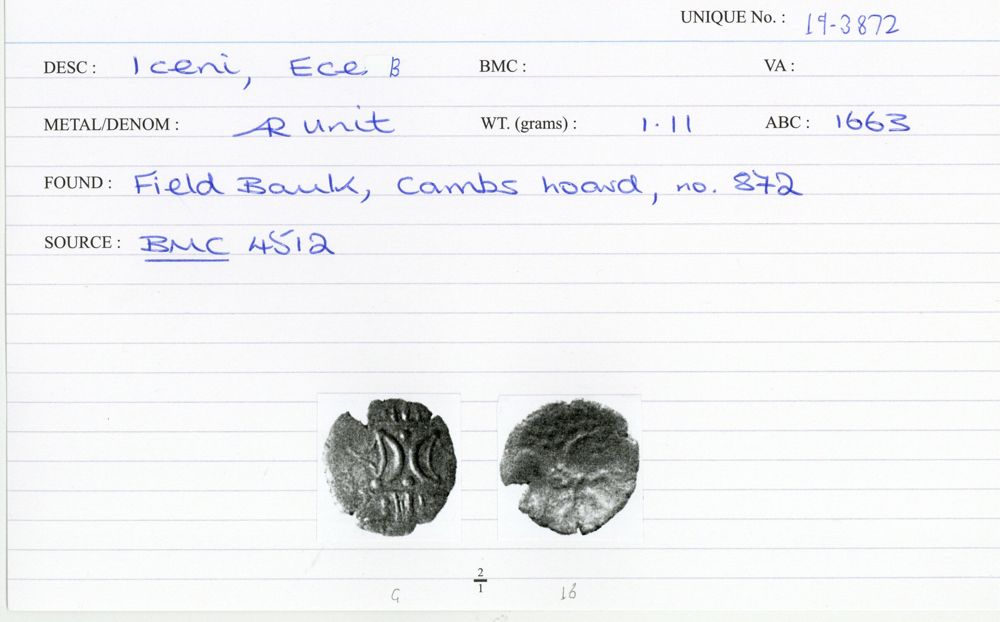 UNIQUE No. : 19-3872
DESC : Iceni, Ece B BMC : VA :
METAL/DENOM : AR unit WT. (grams) : 1.11 ABC : 1663
FOUND : Field Baulk, Cambs hoard, no. 872
SOURCE : BMC 4512
2
1
G 16